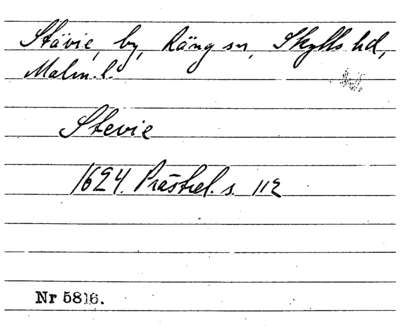 Stävie, by, Räng sn, Skytts hd,
Malm. l.
Stevie
1624. Prästrel. s. 112
Nr 5816.